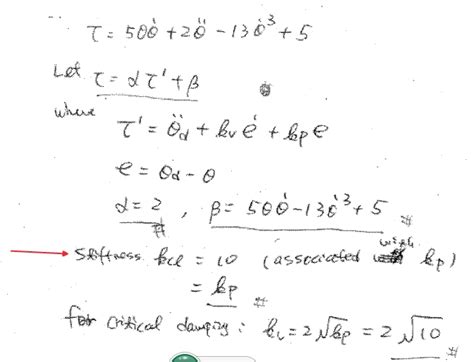 τ = 50θθ̇ + 2θ̈ - 13θ̇³ + 5
Let τ = ατ' + β
where
τ' = θ̈d + kv ė + kp e
e = θd - θ
α = 2 , β = 50θθ̇ - 13θ̇³ + 5 #
Stiffness kcl = 10 (associated with kp)
= kp #
for critical damping : kv = 2√kp = 2√10